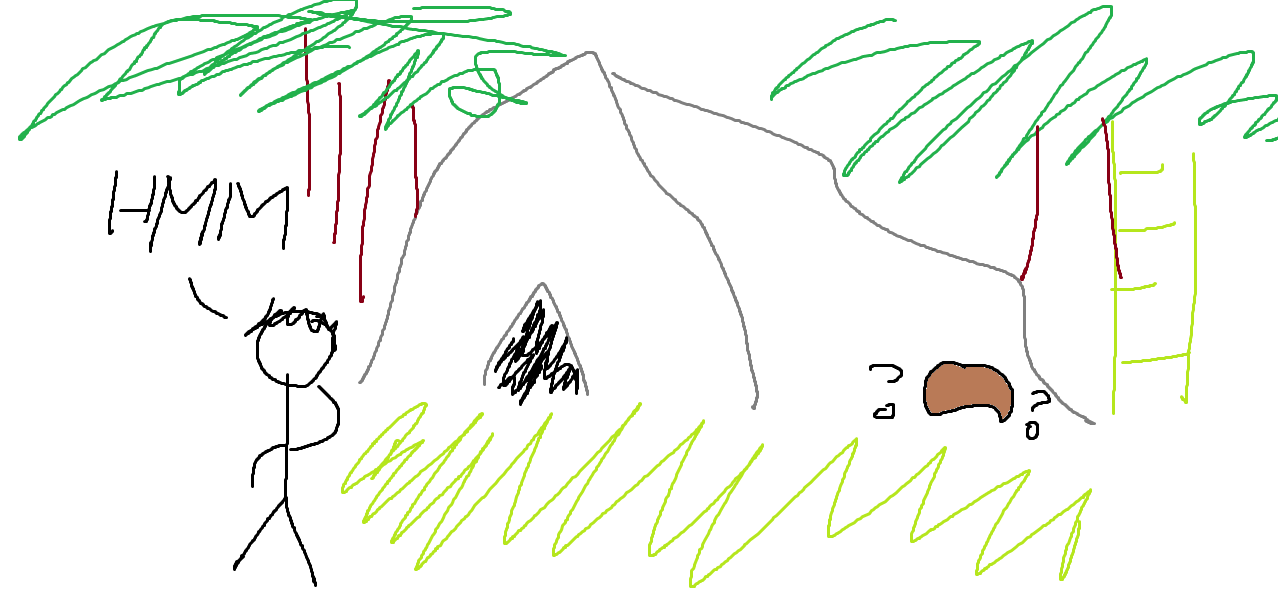 HMM
? ?